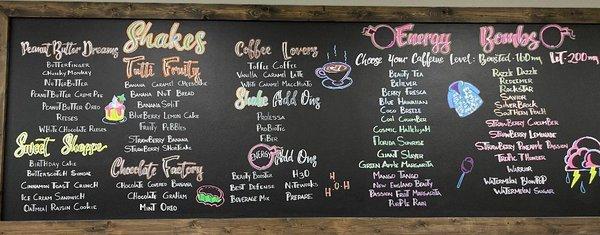 Shakes
Peanut Butter Dreams
Butterfinger
Chunky Monkey
Nutter Butter
Peanut Butter Creme Pie
Peanut Butter Oreo
Reeses
White Chocolate Reeses
Sweet Shoppe
Birthday Cake
Butterscotch Sundae
Cinnamon Toast Crunch
Ice Cream Sandwich
Oatmeal Raisin Cookie
Tutti Fruity
Banana Caramel Cheesecake
Banana Nut Bread
Banana Split
Blueberry Lemon Cake
Fruity Pebbles
Strawberry Banana
Strawberry Shortcake
Chocolate Factory
Chocolate Covered Banana
Chocolate Graham
Mint Oreo
Coffee Lovers
Toffee Coffee
Vanilla Caramel Latte
White Caramel Macchiato
Shake Add Ons
Prolessa
Probiotic
Fiber
Energy Add Ons
Beauty Booster
H3O
Best Defense
Niteworks
Beverage Mix
Prepare
H
H-O-H
Energy Bombs
Choose Your Caffeine Level: Boosted-160mg Lit-200mg
Beauty Tea
Believer
Berry Fresca
Blue Hawaiian
Coco Breeze
Cool Cucumber
Cosmic Hallelujah
Florida Sunrise
Giant Slayer
Green Apple Margarita
Mango Tango
New England Beauty
Passion Fruit Margarita
Purple Rain
Razzle Dazzle
Redeemer
Rockstar
Savior
Silver Brook
Southern Peach
Strawberry Cucumber
Strawberry Lemonade
Strawberry Pineapple Passion
Tropic Thunder
Warrior
Watermelon Blow Pop
Watermelon Sugar